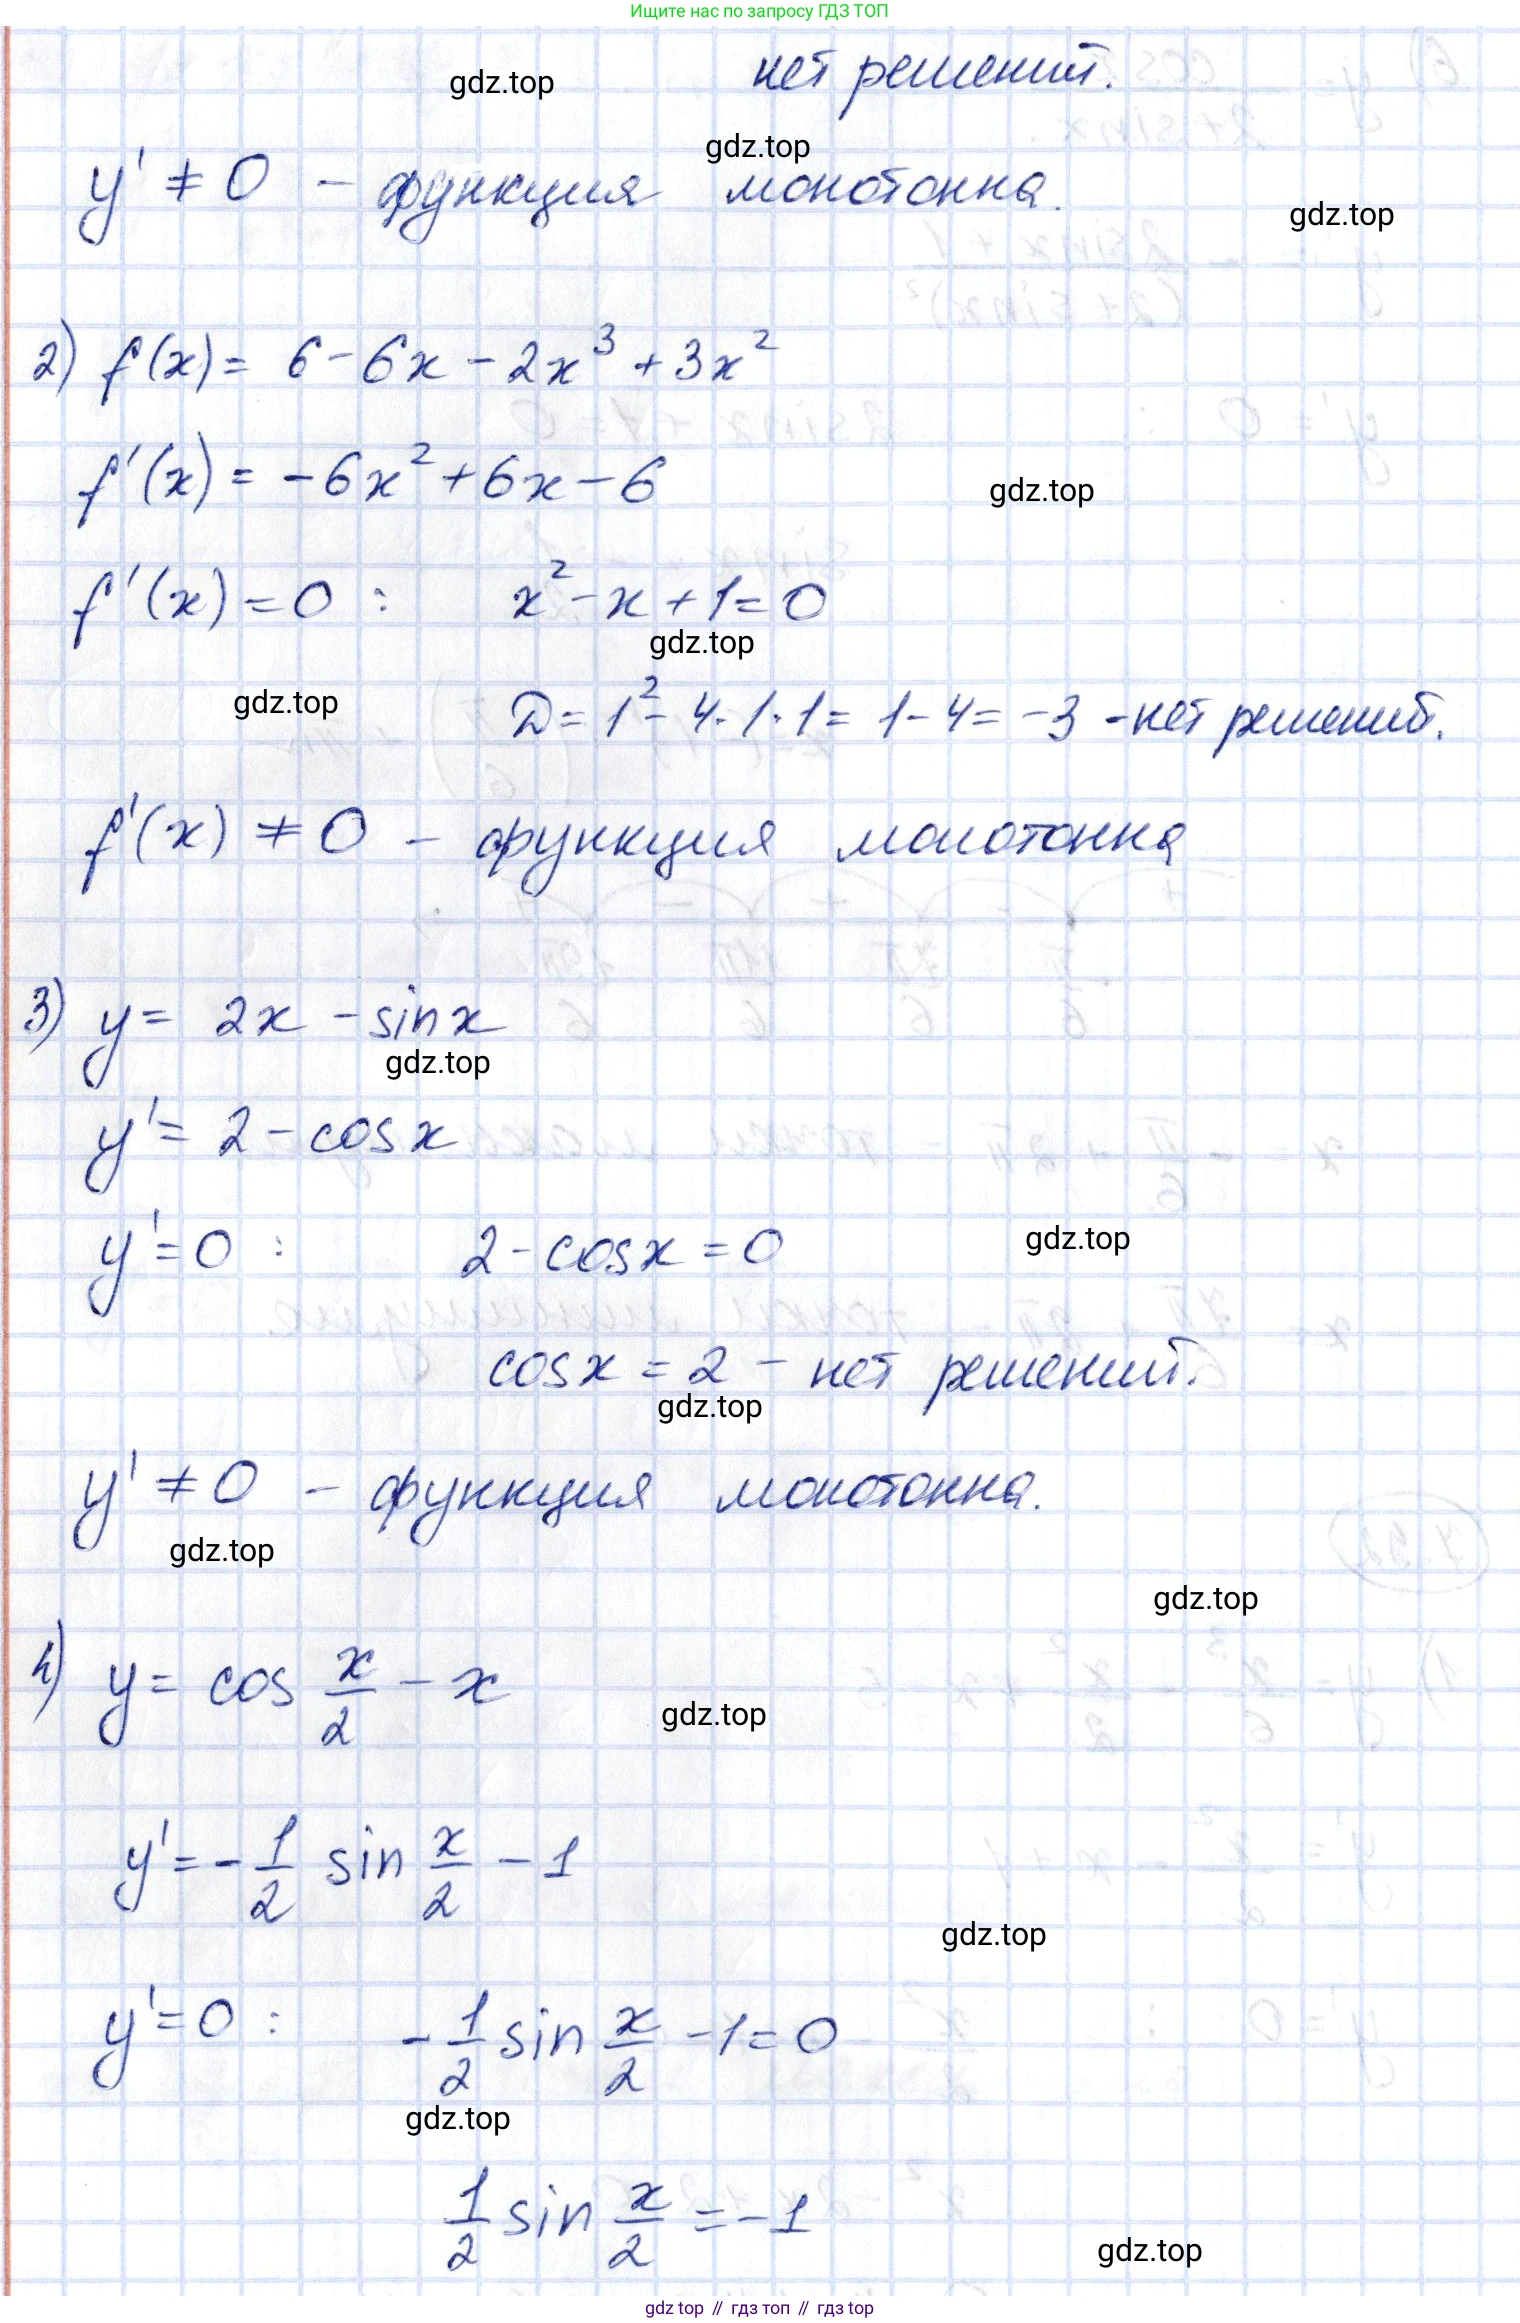 Ищите нас по запросу ГДЗ ТОП
нет решений.
gdz.top
gdz.top
y' ≠ 0 – функция монотонна.
gdz.top
2) f(x) = 6 - 6x - 2x³ + 3x²
f'(x) = -6x² + 6x - 6
gdz.top
f'(x) = 0 : x² - x + 1 = 0
gdz.top
gdz.top
D = 1² - 4·1·1 = 1 - 4 = -3 - нет решений.
f'(x) ≠ 0 – функция монотонна
3) y = 2x - sinx
gdz.top
y' = 2 - cosx
y' = 0 : 2 - cosx = 0
gdz.top
cosx = 2 – нет решений.
gdz.top
y' ≠ 0 – функция монотонна.
gdz.top
gdz.top
4) y = cos x/2 - x
gdz.top
y' = -1/2 sin x/2 - 1
gdz.top
y' = 0 : -1/2 sin x/2 - 1 = 0
gdz.top
1/2 sin x/2 = -1
gdz.top
gdz top // гдз топ // гдз top